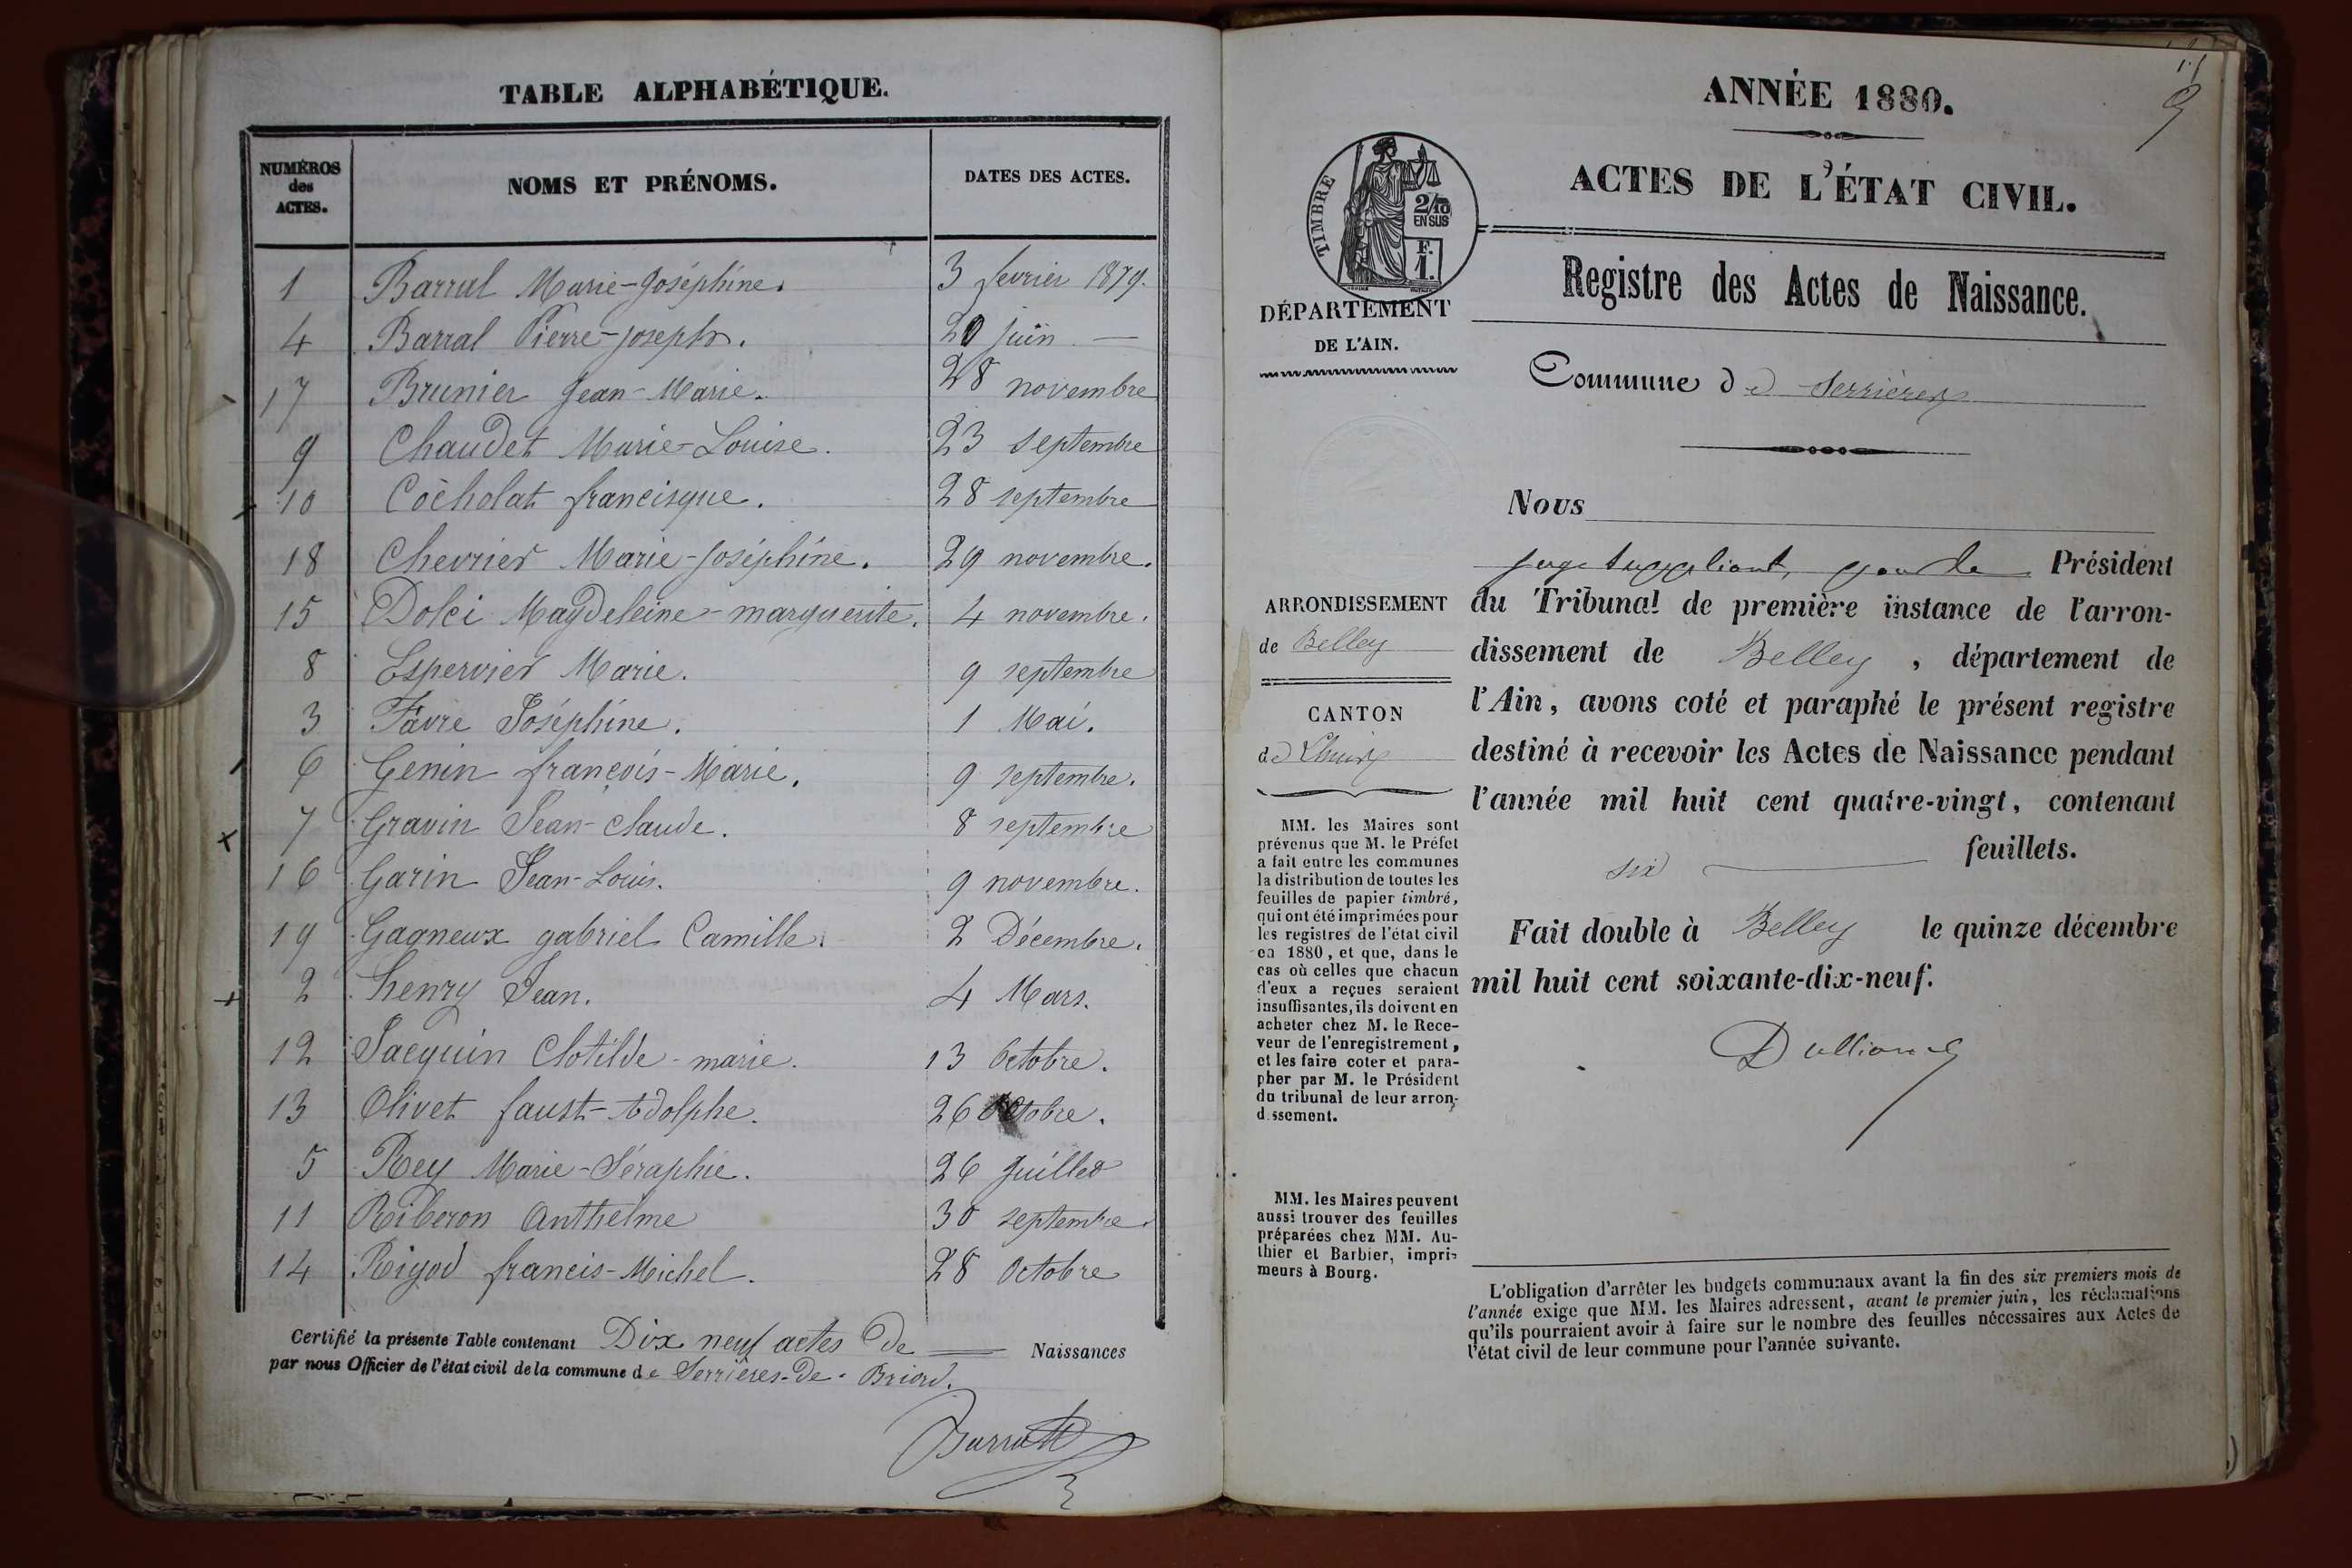 TABLE ALPHABÉTIQUE.
NUMÉROS des ACTES.
NOMS ET PRÉNOMS.
DATES DES ACTES.
1 Barral Marie-Joséphine. 3 fevrier 1879.
4 Barral Pierre-joseph. 20 juin —
17 Brunier Jean-Marie. 28 novembre
9 Chaudet Marie-Louise. 23 septembre
10 Cocholat francisque. 28 septembre
18 Chevrier Marie-Joséphine. 29 novembre.
15 Dolci Magdeleine-marguerite. 4 novembre.
8 Espervier Marie. 9 septembre
3 Favre Joséphine. 1 Mai.
6 Genin françois-Marie. 9 septembre.
7 Gravin Jean-claude. 8 septembre
16 Garin Jean-Louis. 9 novembre.
19 Gagneux gabriel Camille. 2 Décembre.
2 henry Jean. 4 Mars.
12 Jacquin Clotilde-marie. 13 Octobre.
13 Olivet faust-Adolphe. 26 Octobre.
5 Rey Marie-Séraphie. 26 Juillet
11 Riberon Anthelme 30 septembre.
14 Rigod francis-Michel. 28 Octobre
Certifié la présente Table contenant Dix neuf actes de — Naissances
par nous Officier de l'état civil de la commune de Serrières-De-Briord.
Barral
9
ANNÉE 1880.
ACTES DE L'ÉTAT CIVIL.
TIMBRE
2/10
EN SUS
F.
1.
Registre des Actes de Naissance.
DÉPARTEMENT
DE L'AIN.
Commune d e Serrières
Nous
juge suppléant, pour le Président
du Tribunal de première instance de l'arron-
dissement de Belley, département de
l'Ain, avons coté et paraphé le présent registre
destiné à recevoir les Actes de Naissance pendant
l'année mil huit cent quatre-vingt, contenant
six feuillets.
Fait double à Belley le quinze décembre
mil huit cent soixante-dix-neuf.
ARRONDISSEMENT
de Belley
CANTON
de Lhuis
MM. les Maires sont
prévenus que M. le Préfet
a fait entre les communes
la distribution de toutes les
feuilles de papier timbré,
qui ont été imprimées pour
les registres de l'état civil
en 1880, et que, dans le
cas où celles que chacun
d'eux a reçues seraient
insuffisantes, ils doivent en
acheter chez M. le Rece-
veur de l'enregistrement,
et les faire coter et para-
pher par M. le Président
du tribunal de leur arron-
dissement.
MM. les Maires peuvent
aussi trouver des feuilles
préparées chez MM. Au-
thier et Barbier, impri-
meurs à Bourg.
L'obligation d'arrêter les budgets communaux avant la fin des six premiers mois de
l'année exige que MM. les Maires adressent, avant le premier juin, les réclamations
qu'ils pourraient avoir à faire sur le nombre des feuilles nécessaires aux Actes de
l'état civil de leur commune pour l'année suivante.